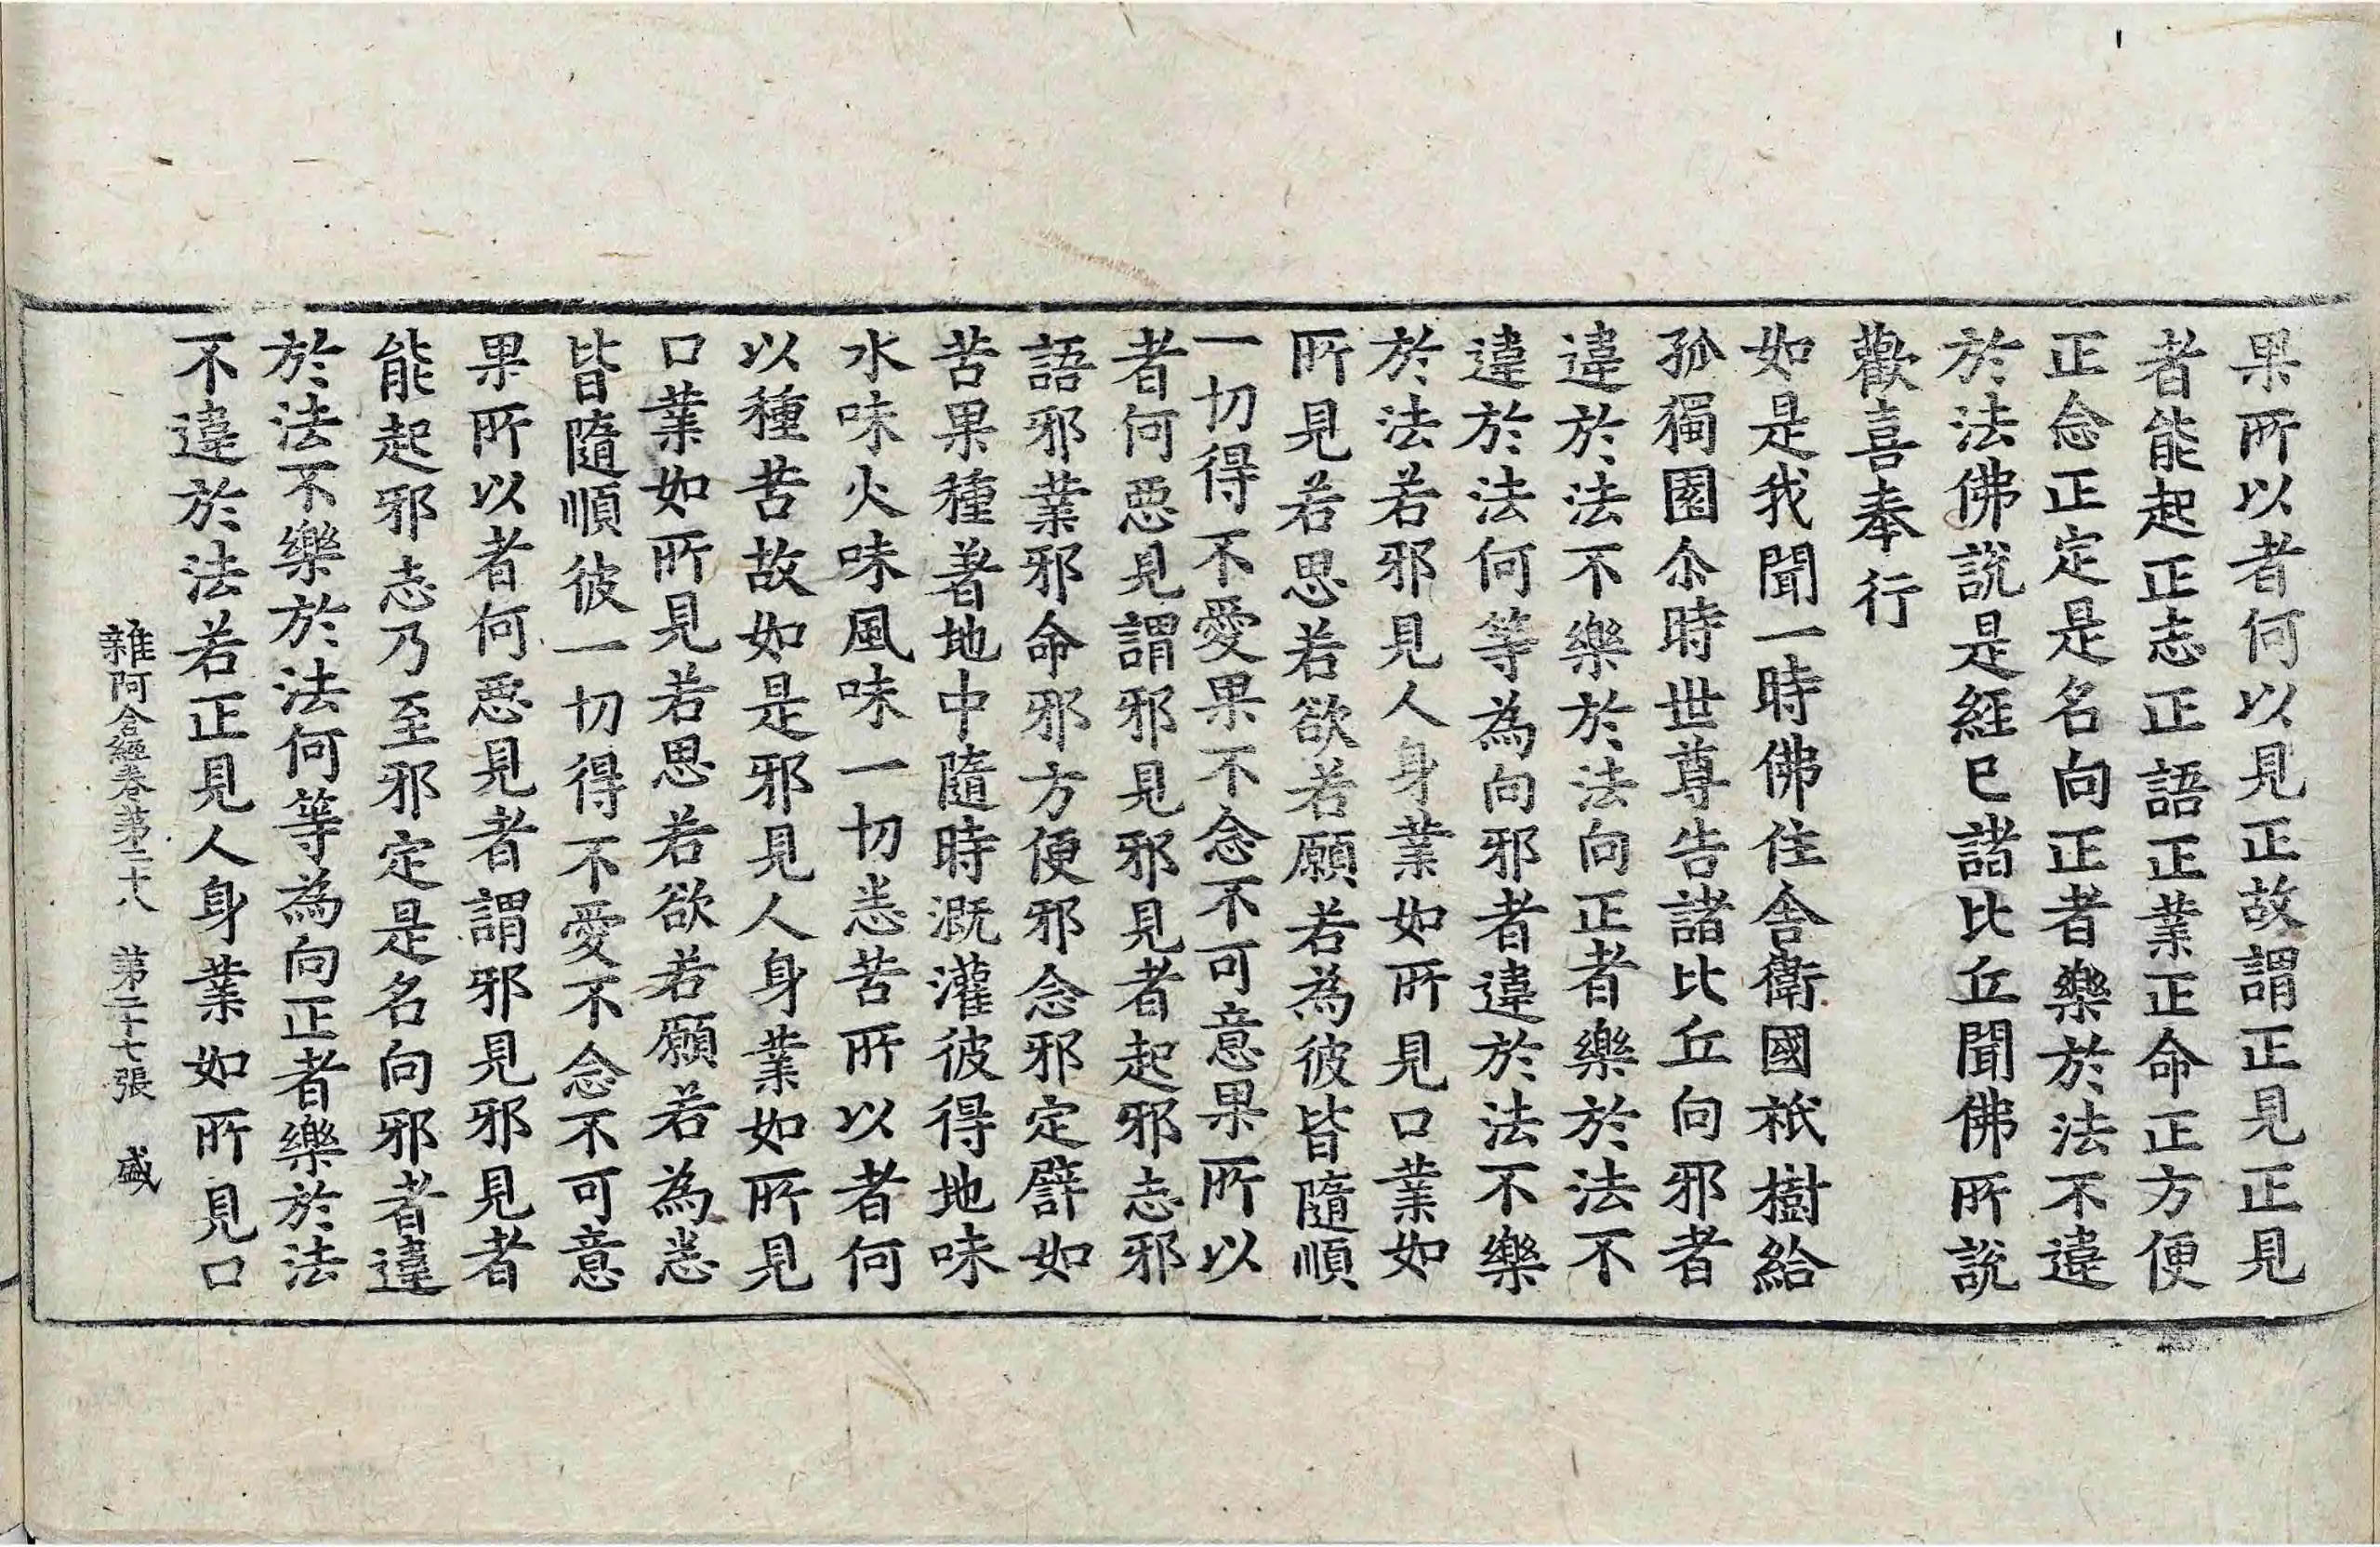 果所以者何以見正故謂正見正見
者能起正志正語正業正命正方便
正念正定是名向正者樂於法不違
於法佛說是經已諸比丘聞佛所說
歡喜奉行
如是我聞一時佛住舍衛國祇樹給
孤獨園尒時世尊告諸比丘向邪者
違於法不樂於法向正者樂於法不
違於法何等為向邪者違於法不樂
於法若邪見人身業如所見口業如
所見若思若欲若願若為彼皆隨順
一切得不愛果不念不可意果所以
者何惡見謂邪見邪見者起邪志邪
語邪業邪命邪方便邪念邪定譬如
苦果種著地中隨時溉灌彼得地味
水味火味風味一切悉苦所以者何
以種苦故如是邪見人身業如所見
口業如所見若思若欲若願若為悉
皆隨順彼一切得不愛不念不可意
果所以者何惡見者謂邪見邪見者
能起邪志乃至邪定是名向邪者違
於法不樂於法何等為向正者樂於法
不違於法若正見人身業如所見口
雜阿含經卷第二十八 第二十七張 盛